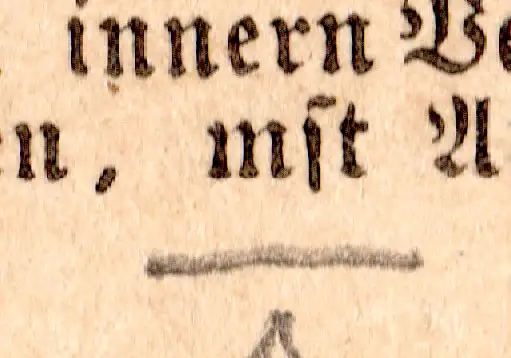 innern Ve
en, mſt A